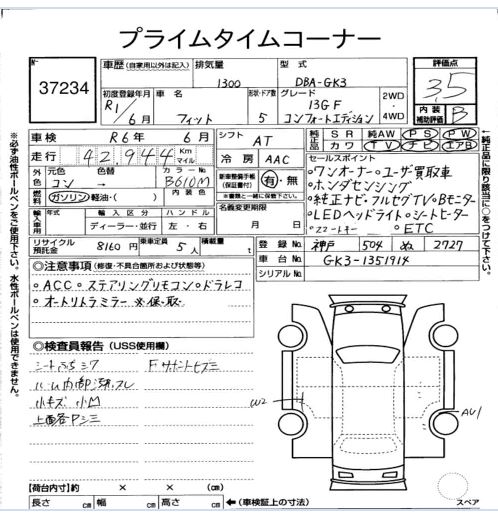 プライムタイムコーナー
No. 37234
車歴 (自家用以外は記入) 排気量 型式 評価点
1300 DBA-GK3 3.5
初度登録年月 車名 形状・ドア数 グレード 2WD 4WD 内装補助評価
R1/6月 フィット 5 13GF コンフォートエディション B
車検 R6年 6月 シフト AT 純正品 SR 純AW PS PW
カワ TV ナビ エアB
走行 42,944 Km マイル 冷房 AAC セールスポイント
外色 元色 色替 カラーNo. 新車整備手帳(保証書付) 有・無
コン → B610M ※書類と一緒に保管して下さい。
燃料 ガソリン 軽油・( ) 名義変更期限
輸入車用 年式 輸入区分 ハンドル
ディーラー・並行 左・右 月 日
○ワンオーナー○ユーザ買取車
○ホンダセンシング
○純正ナビ・フルセグTV○Bモニター
○LEDヘッドライト○シートヒーター
○スマートキー ○ETC
リサイクル預託金 8160円 乗車定員 5人 積載量 t 登録No. 神戸 504 ぬ 2727
車台No. GK3-1351914
シリアルNo.
◎注意事項 (修復・不具合箇所および状態等)
○ACC○ステアリングリモコン○ドラレコ
○オートリトラミラー ※保、取
◎検査員報告 (USS使用欄)
小キズ 小M
W2
AU1
【荷台内寸】約 × × (cm)
長さ cm 幅 cm 高さ cm ←(車検証上の寸法)
スペア
※必ず油性ボールペンをご使用下さい。水性ボールペンは使用できません。
←純正品に限り該当に○をつけて下さい。